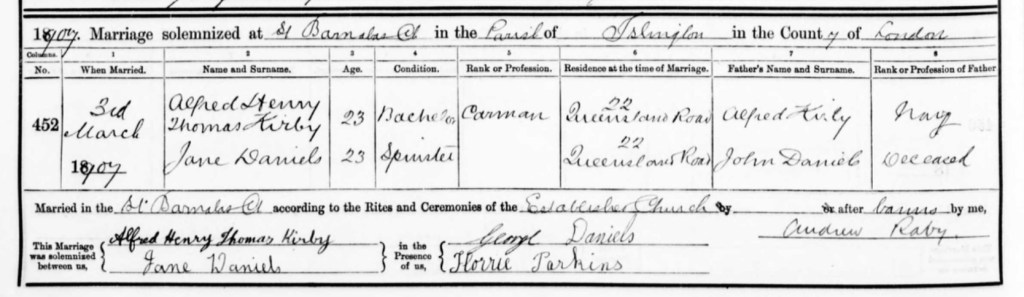 1907. Marriage solemnized at St Barnabas Ch in the Parish of Islington in the County of London
Columns. 1 2 3 4 5 6 7 8
No. When Married. Name and Surname. Age. Condition. Rank or Profession. Residence at the time of Marriage. Father's Name and Surname. Rank or Profession of Father
452 3rd March 1907 Alfred Henry Thomas Kirby 23 Bachelor Carman 22 Queensland Road Alfred Kirby
Jane Daniels 23 Spinster 22 Queensland Road John Daniels Deceased
Married in the St Barnabas Ch according to the Rites and Ceremonies of the Established Church by or after banns by me,
Andrew Raby.
This Marriage was solemnized between us, Alfred Henry Thomas Kirby in the Presence of us, George Daniels
Jane Daniels Florrie Parkins